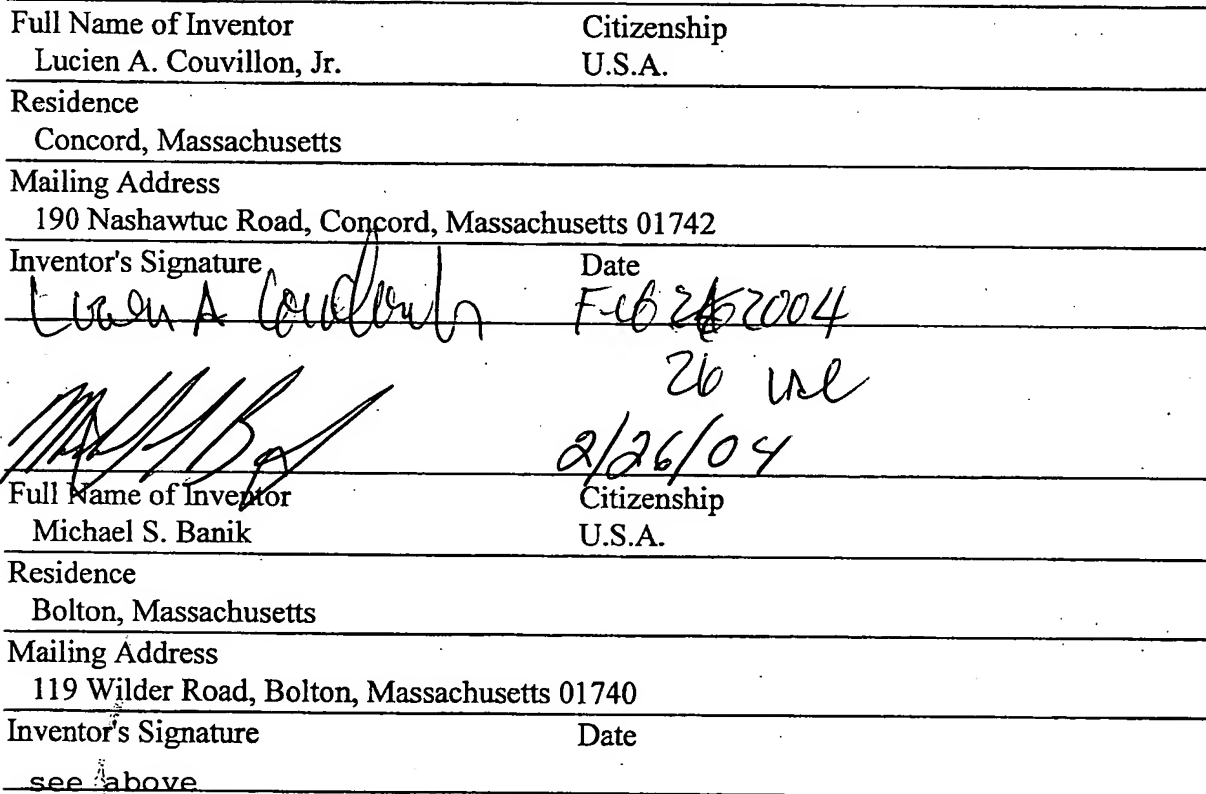 Full Name of Inventor Citizenship
Lucien A. Couvillon, Jr. U.S.A.
Residence
Concord, Massachusetts
Mailing Address
190 Nashawtuc Road, Concord, Massachusetts 01742
Inventor's Signature Date
Lucien A Couvillon Jr Feb 2004
26
2/26/04
Full Name of Inventor Citizenship
Michael S. Banik U.S.A.
Residence
Bolton, Massachusetts
Mailing Address
119 Wilder Road, Bolton, Massachusetts 01740
Inventor's Signature Date
see above